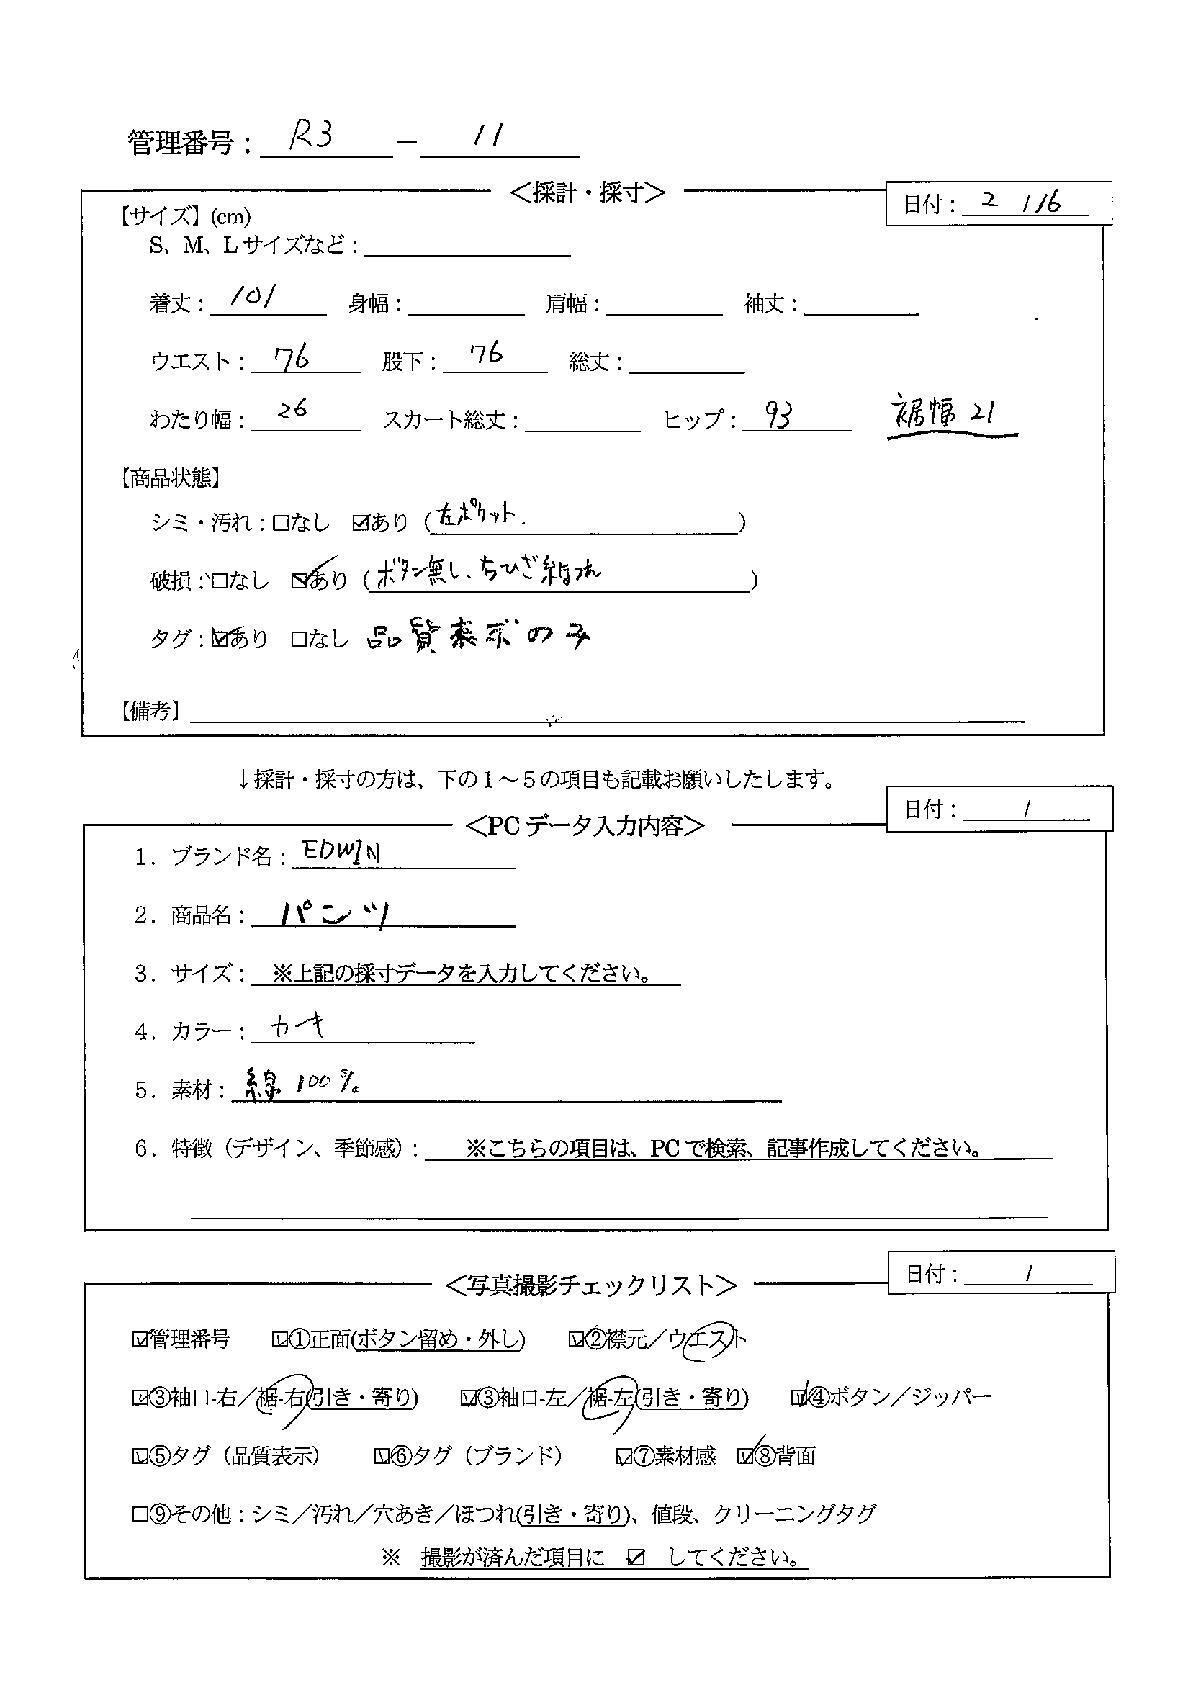 管理番号： R3 － 11
＜採計・採寸＞
日付： 2 1/6
【サイズ】(cm)
S、M、Lサイズなど：
着丈： 101 身幅： 肩幅： 袖丈：
ウエスト： 76 股下： 76 総丈：
わたり幅： 26 スカート総丈： ヒップ： 93 裾幅 21
【商品状態】
シミ・汚れ：□なし ☑あり（左ポケット.）
破損：□なし ☑あり（ボタン無し、ちひざ）
タグ：☑あり □なし 品質表示のみ
【備考】
↓採計・採寸の方は、下の１～５の項目も記載お願いしたします。
＜PCデータ入力内容＞
日付： /
１．ブランド名： EDWIN
２．商品名： パンツ
３．サイズ： ※上記の採寸データを入力してください。
４．カラー： カーキ
５．素材： 綿 100%
６．特徴（デザイン、季節感）： ※こちらの項目は、PCで検索、記事作成してください。
＜写真撮影チェックリスト＞
日付： /
☑管理番号 ☑①正面(ボタン留め・外し) ☑②襟元／ウエスト
☑③袖口-右／裾-右(引き・寄り) ☑③袖口-左／裾-左(引き・寄り) ☑④ボタン／ジッパー
☑⑤タグ（品質表示） ☑⑥タグ（ブランド） ☑⑦素材感 ☑⑧背面
□⑨その他：シミ／汚れ／穴あき／ほつれ(引き・寄り)、値段、クリーニングタグ
※ 撮影が済んだ項目に ☑ してください。